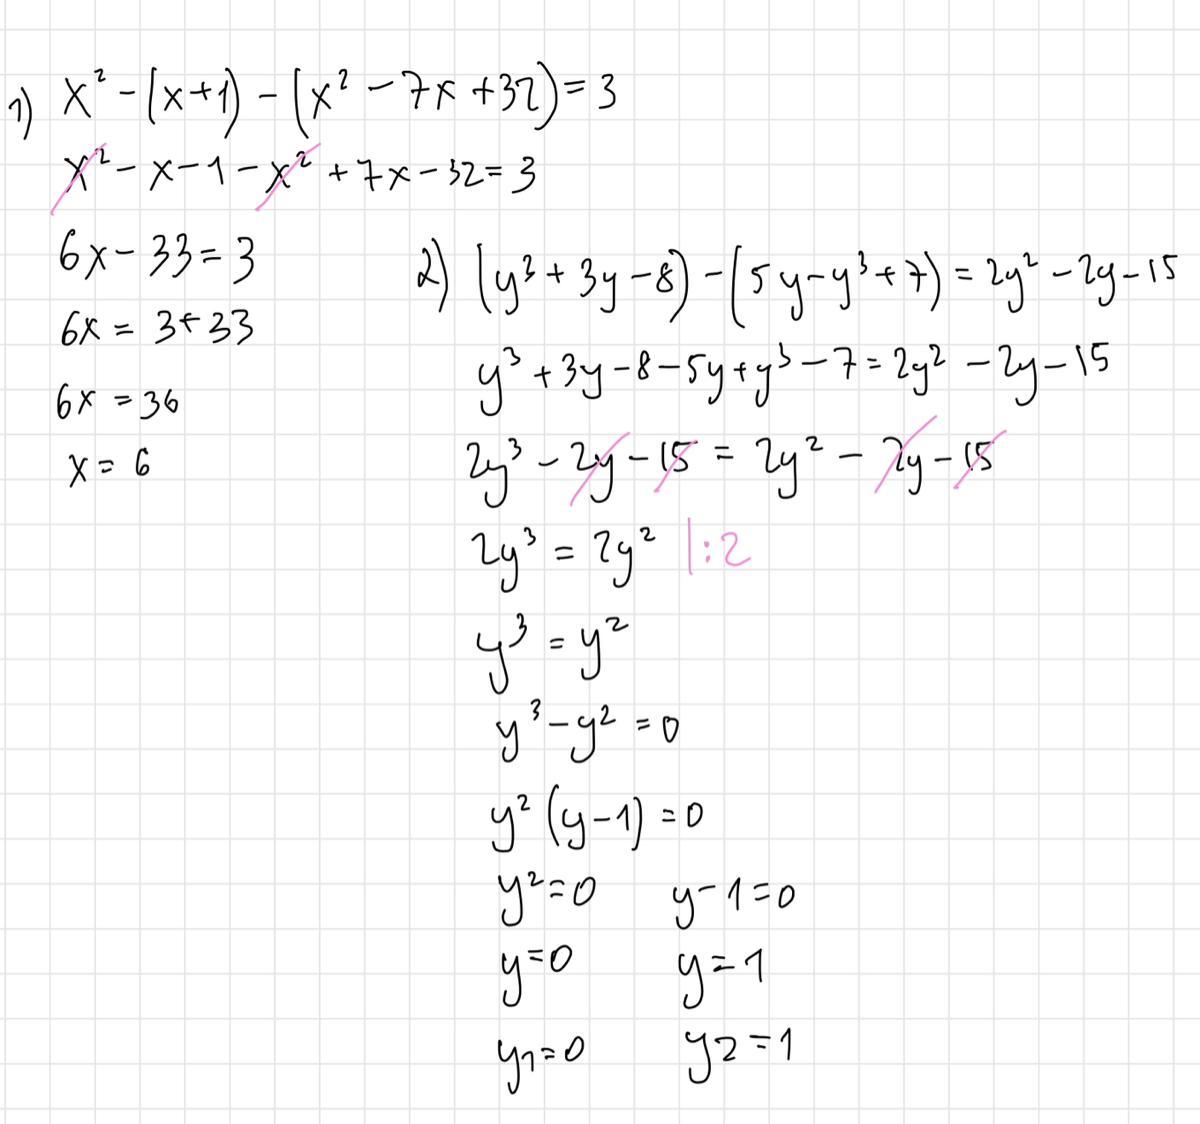 1) x² - (x+1) - (x² - 7x + 32) = 3
x² - x - 1 - x² + 7x - 32 = 3
6x - 33 = 3
6x = 3 + 33
6x = 36
x = 6
2) (y³ + 3y - 8) - (5y - y³ + 7) = 2y² - 2y - 15
y³ + 3y - 8 - 5y + y³ - 7 = 2y² - 2y - 15
2y³ - 2y - 15 = 2y² - 2y - 15
2y³ = 2y² |:2
y³ = y²
y³ - y² = 0
y² (y - 1) = 0
y² = 0 y - 1 = 0
y = 0 y = 1
y₁ = 0 y₂ = 1